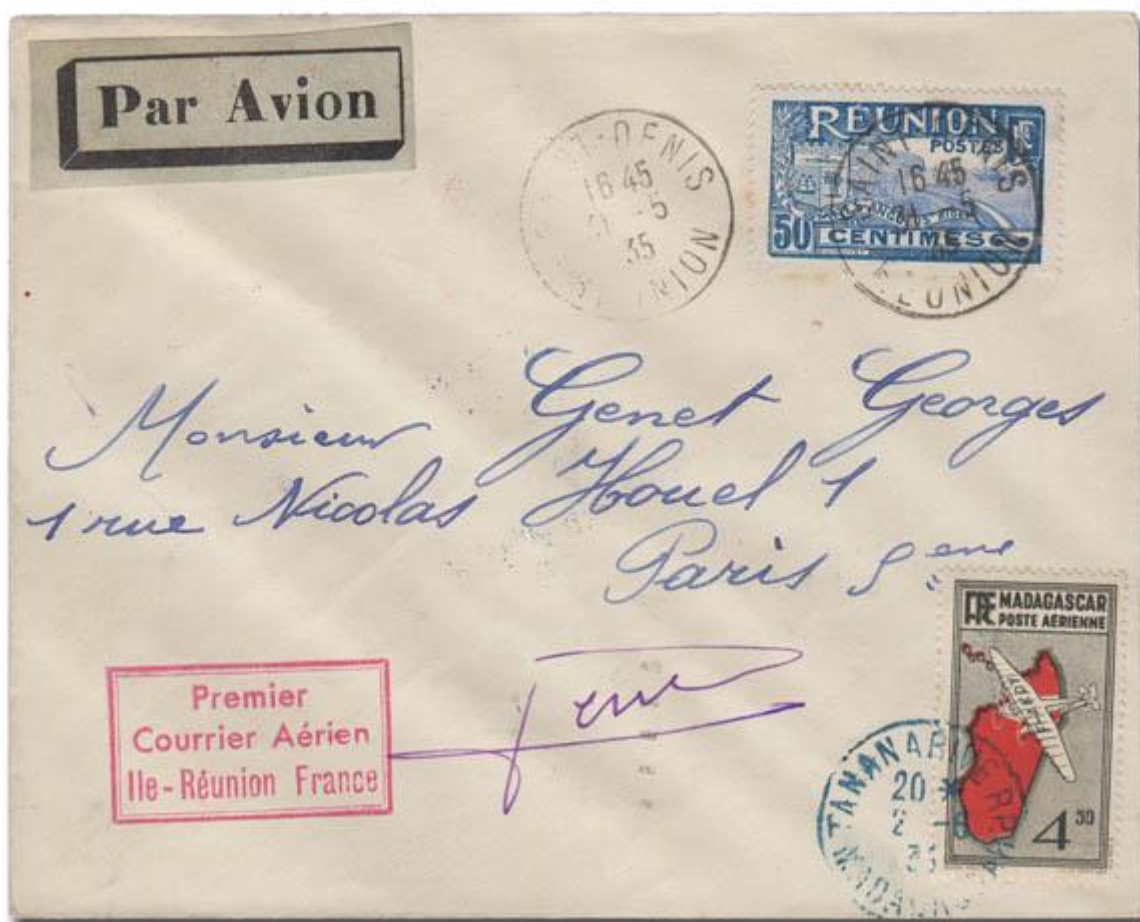 Par Avion
SAINT-DENIS
16 45
31 -5
35
RÉUNION
RÉUNION
POSTES
50 CENTIMES
SAINT-DENIS
16 45
31 -5
RÉUNION
Monsieur Genet Georges
1 rue Nicolas Houel 1
Paris 5eme
Premier
Courrier Aérien
Ile-Réunion France
MADAGASCAR
POSTE AÉRIENNE
4 50
TANANARIVE R.P.
20 *
2 -6
35
MADAGASCAR